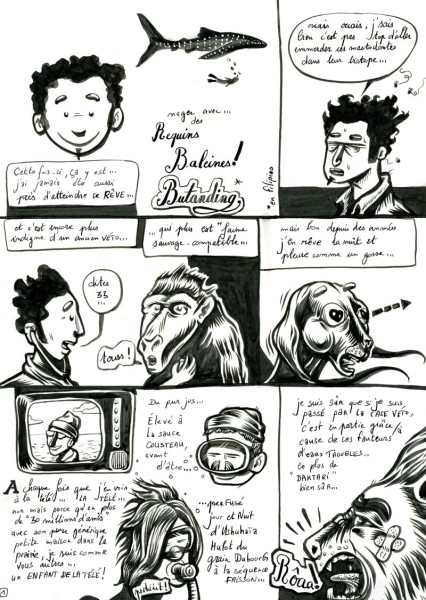 Cette fois-ci, ça y est...
j'ai jamais été aussi
près d'atteindre ce RÊVE...
nager avec...
des
Requins
Baleines!
Butanding*
*en filipino
ouais ouais, j'sais
bien c'est pas top d'aller
emmerder ces mastodontes
dans leur biotope...
et c'est encore plus
indigne d'un ancien VETO...
dites
33
...
... qui plus est "faune
sauvage-compatible"...
tousse!
mais bon depuis des années
j'en RÊVE la nuit et
pleure comme un gosse...
A chaque fois que j'en vois
à la télé... LA TÉLÉ...
non mais parce qu'en plus
de "30 millions d'amis"
avec son générique
petite maison dans la
prairie, je suis comme
vous autres...
un ENFANT DE LA TÉLÉ!
1
Du pur jus...
Élevé à
la sauce
COUSTEAU,
avant
d'être...
...perfusé
jour et Nuit
d'Ushuhaïa
Hulot du
grain
à la séquence
FRISSON...
pschiiit!
je suis sûr que si je suis
passé par la CASE VETO,
c'est en partie grâce/à
cause de ces fauteurs
d'eaux TROUBLES...
en plus de
"DAKTARI"
bien sûr...
Rôaa!